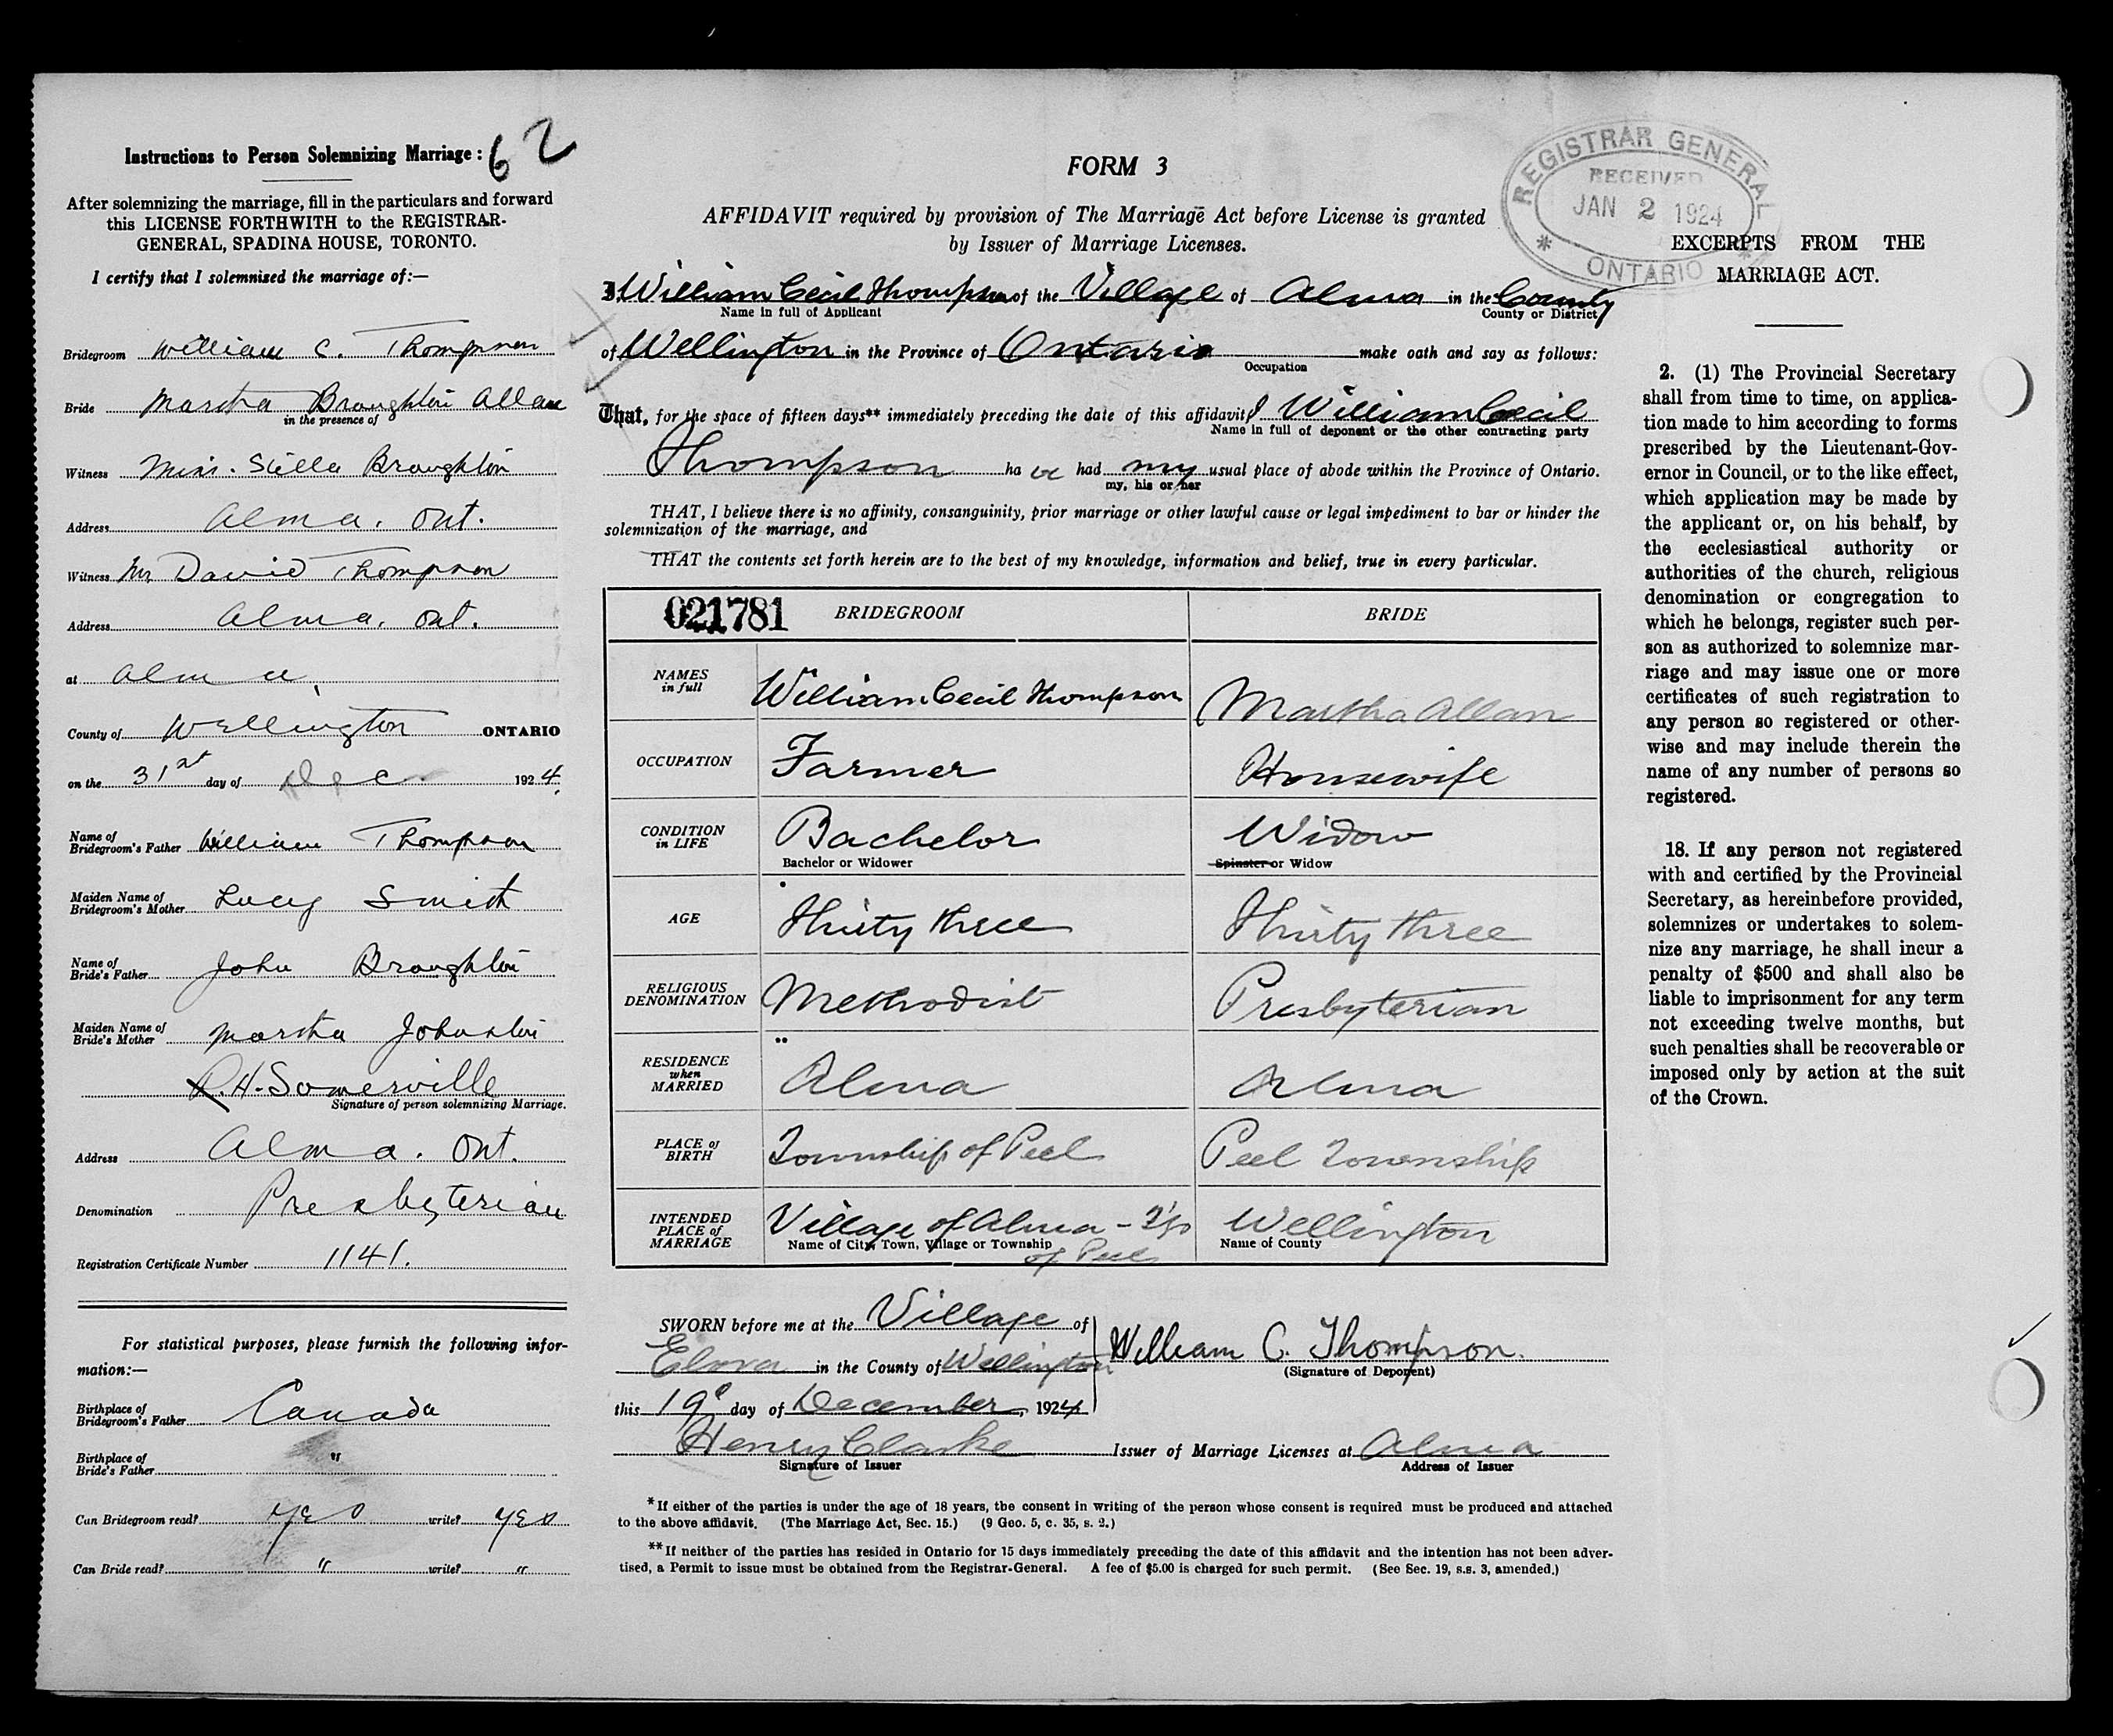 Instructions to Person Solemnizing Marriage: 62
After solemnizing the marriage, fill in the particulars and forward
this LICENSE FORTHWITH to the REGISTRAR-
GENERAL, SPADINA HOUSE, TORONTO.
I certify that I solemnized the marriage of:—
Bridegroom William C. Thompson
Bride Martha Broughton Allan
in the presence of
Witness Miss. Stella Broughton
Address Alma. Ont.
Witness Mr David Thompson
Address Alma. Ont.
at Alma,
County of Wellington ONTARIO
on the 31st day of Dec. 1924.
Name of
Bridegroom's Father William Thompson
Maiden Name of
Bridegroom's Mother Lucy Smith
Name of
Bride's Father John Broughton
Maiden Name of
Bride's Mother Martha Johnston
R. H. Somerville
Signature of person solemnizing Marriage.
Address Alma. Ont.
Denomination Presbyterian
Registration Certificate Number 1141.
For statistical purposes, please furnish the following infor-
mation:—
Birthplace of
Bridegroom's Father Canada
Birthplace of
Bride's Father "
Can Bridegroom read? Yes write? Yes
Can Bride read? " write? "
FORM 3
AFFIDAVIT required by provision of The Marriage Act before License is granted
by Issuer of Marriage Licenses.
I, William Cecil Thompson of the Village of Alma in the County
Name in full of Applicant County or District
of Wellington in the Province of Ontario make oath and say as follows:
Occupation
That, for the space of fifteen days** immediately preceding the date of this affidavit I William Cecil
Name in full of deponent or the other contracting party
Thompson ha ve had my usual place of abode within the Province of Ontario.
my, his or her
THAT, I believe there is no affinity, consanguinity, prior marriage or other lawful cause or legal impediment to bar or hinder the
solemnization of the marriage, and
THAT the contents set forth herein are to the best of my knowledge, information and belief, true in every particular.
021781 BRIDEGROOM BRIDE
NAMES
in full William Cecil Thompson Martha Allan
OCCUPATION Farmer Housewife
CONDITION
in LIFE Bachelor Widow
Bachelor or Widower Spinster or Widow
AGE Thirty three Thirty three
RELIGIOUS
DENOMINATION Methodist Presbyterian
RESIDENCE
when
MARRIED Alma Alma
PLACE of
BIRTH Township of Peel Peel Township
INTENDED
PLACE of
MARRIAGE Village of Alma - T'p Wellington
Name of City, Town, Village or Township Name of County
of Peel
SWORN before me at the Village of
Elora in the County of Wellington William C. Thompson.
(Signature of Deponent)
this 19 day of December, 1924
Henry Clarke Issuer of Marriage Licenses at Alma
Signature of Issuer Address of Issuer
*If either of the parties is under the age of 18 years, the consent in writing of the person whose consent is required must be produced and attached
to the above affidavit. (The Marriage Act, Sec. 15.) (9 Geo. 5, c. 35, s. 2.)
**If neither of the parties has resided in Ontario for 15 days immediately preceding the date of this affidavit and the intention has not been adver-
tised, a Permit to issue must be obtained from the Registrar-General. A fee of $5.00 is charged for such permit. (See Sec. 19, s.s. 3, amended.)
REGISTRAR GENERAL
RECEIVED
JAN 2 1924
* ONTARIO *
EXCERPTS FROM THE
MARRIAGE ACT.
2. (1) The Provincial Secretary
shall from time to time, on applica-
tion made to him according to forms
prescribed by the Lieutenant-Gov-
ernor in Council, or to the like effect,
which application may be made by
the applicant or, on his behalf, by
the ecclesiastical authority or
authorities of the church, religious
denomination or congregation to
which he belongs, register such per-
son as authorized to solemnize mar-
riage and may issue one or more
certificates of such registration to
any person so registered or other-
wise and may include therein the
name of any number of persons so
registered.
18. If any person not registered
with and certified by the Provincial
Secretary, as hereinbefore provided,
solemnizes or undertakes to solem-
nize any marriage, he shall incur a
penalty of $500 and shall also be
liable to imprisonment for any term
not exceeding twelve months, but
such penalties shall be recoverable or
imposed only by action at the suit
of the Crown.